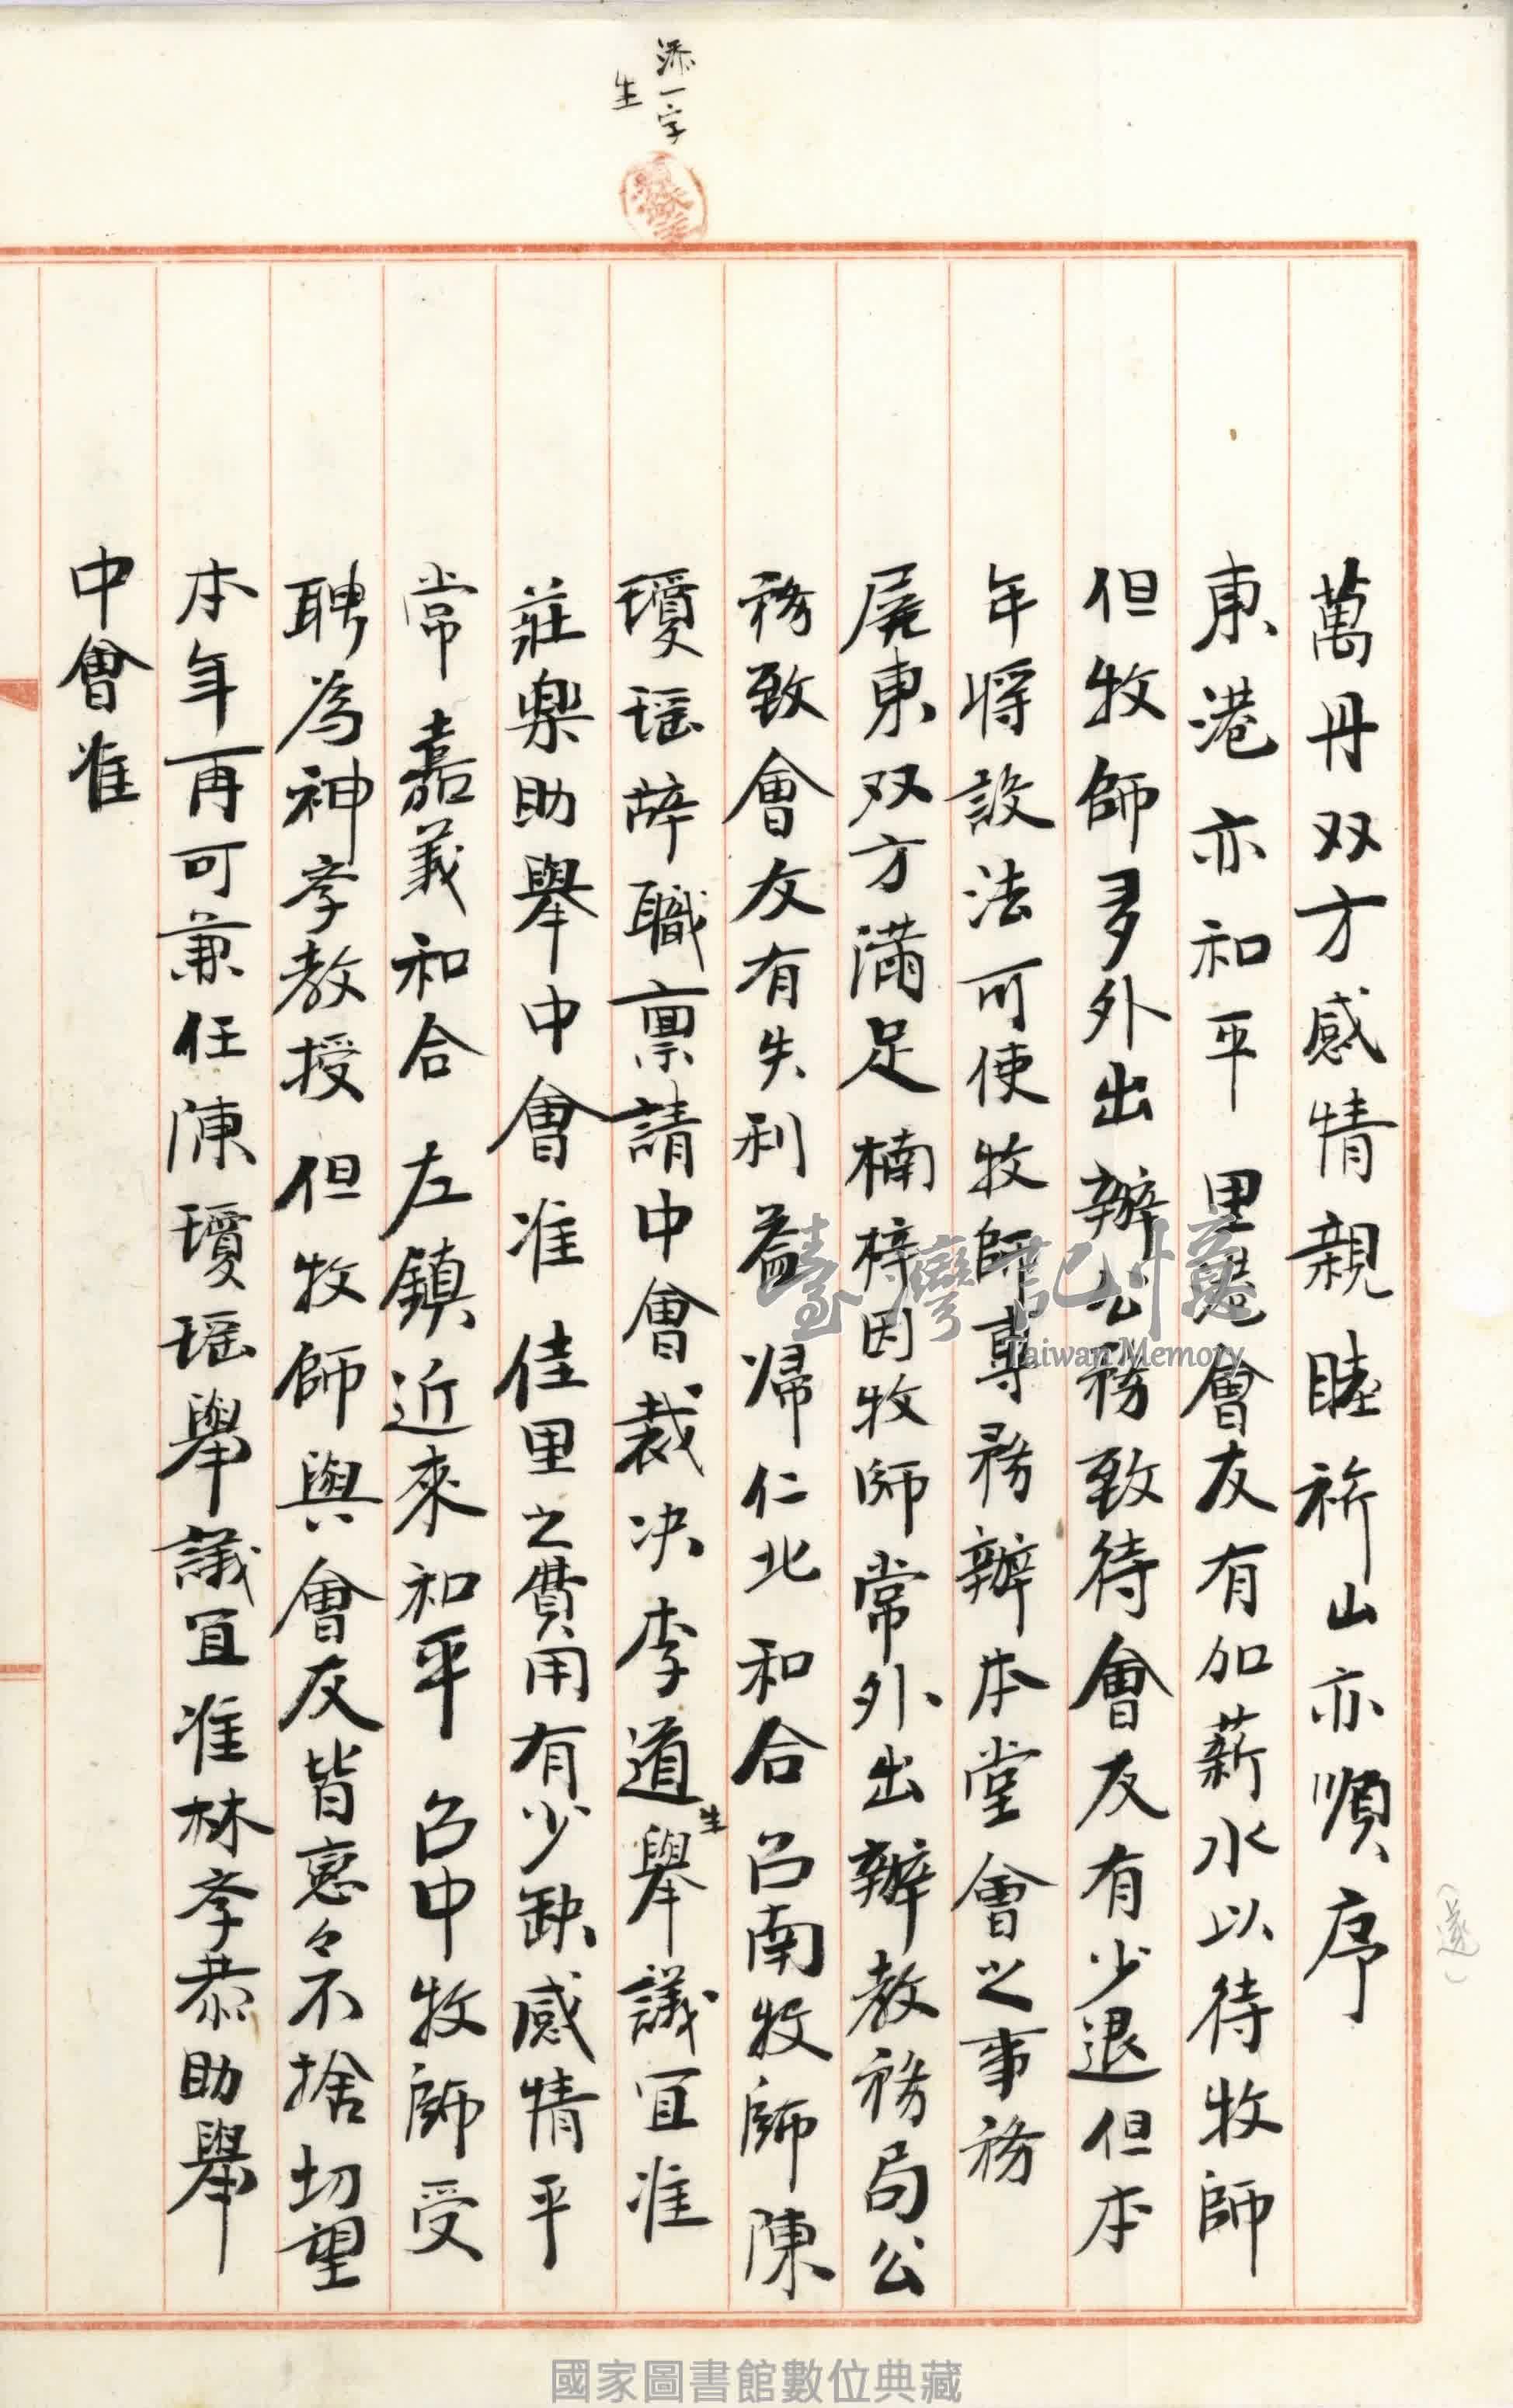 添一字
生
萬丹双方感情親睦祈山亦順序
東港亦和平 里港會友有加薪水以待牧師
但牧師多外出辦公務致待會友有少退但本
年將設法可使牧師專務辦本堂會之事務
屏東双方滿足楠梓因牧師常外出辦教務局公
務致會友有失利益 歸仁北和合 台南牧師陳
瓊瑶辞職禀請中會裁决李道生舉議宜准
莊樂助舉中會准 佳里之費用有少缺感情平
常 嘉義和合 左鎮近來和平 台中牧師受
聘為神孝教授 但牧師與會友皆恋々不捨切望
本年再可兼任陳瓊瑶舉議宜准林孝恭助舉
中會准
臺灣記憶
Taiwan Memory
國家圖書館數位典藏